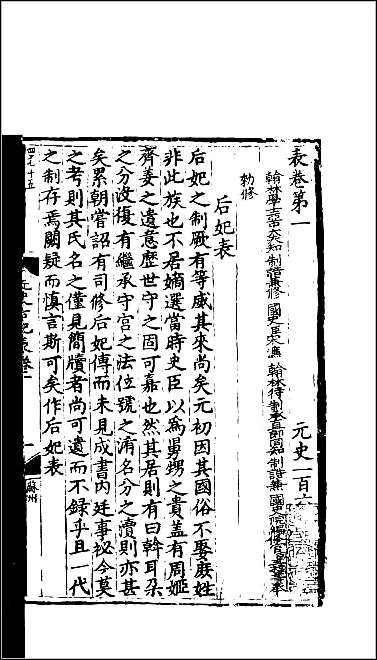 表卷第一 元史一百六
翰林學士亞中大夫知制誥兼修 國史臣宋濂 翰林待制承直郎同知制誥兼 國史院編修官臣王禕奉
勑修
后妃表
后妃之制厥有等威其來尚矣元初因其國俗不娶庶姓
非此族也不居嫡選當時史臣以爲舅甥之貴蓋有周姬
齊姜之遺意歷世守之固可嘉也然其居則有曰斡耳朵
之分没復有繼承守宮之法位號之淆名分之瀆則亦甚
矣累朝嘗詔有司修后妃傳而未見成書內廷事秘今莫
之考則其氏名之僅見簡牘者尚可遺而不録乎且一代
之制存焉闕疑而慎言斯可矣作后妃表
四九十五
元史后妃表卷一
一
蘇州